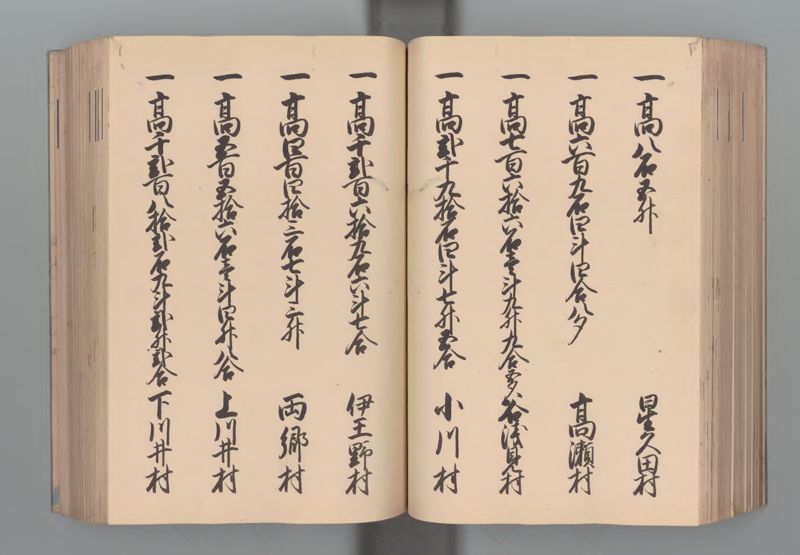 一 高八石五升 星久田村
一 高六百九石四斗四合八夕 高瀬村
一 高七百六拾六石壱斗九升九合 谷浅見村
一 高弐千九拾石四斗七升五合 小川村
一 高千弐百六拾九石六斗七合 伊王野村
一 高四百四拾三石七斗二升 両郷村
一 高五百五拾六石壱斗四升八合 上川井村
一 高千弐百八拾弐石九斗弐升弐合 下川井村